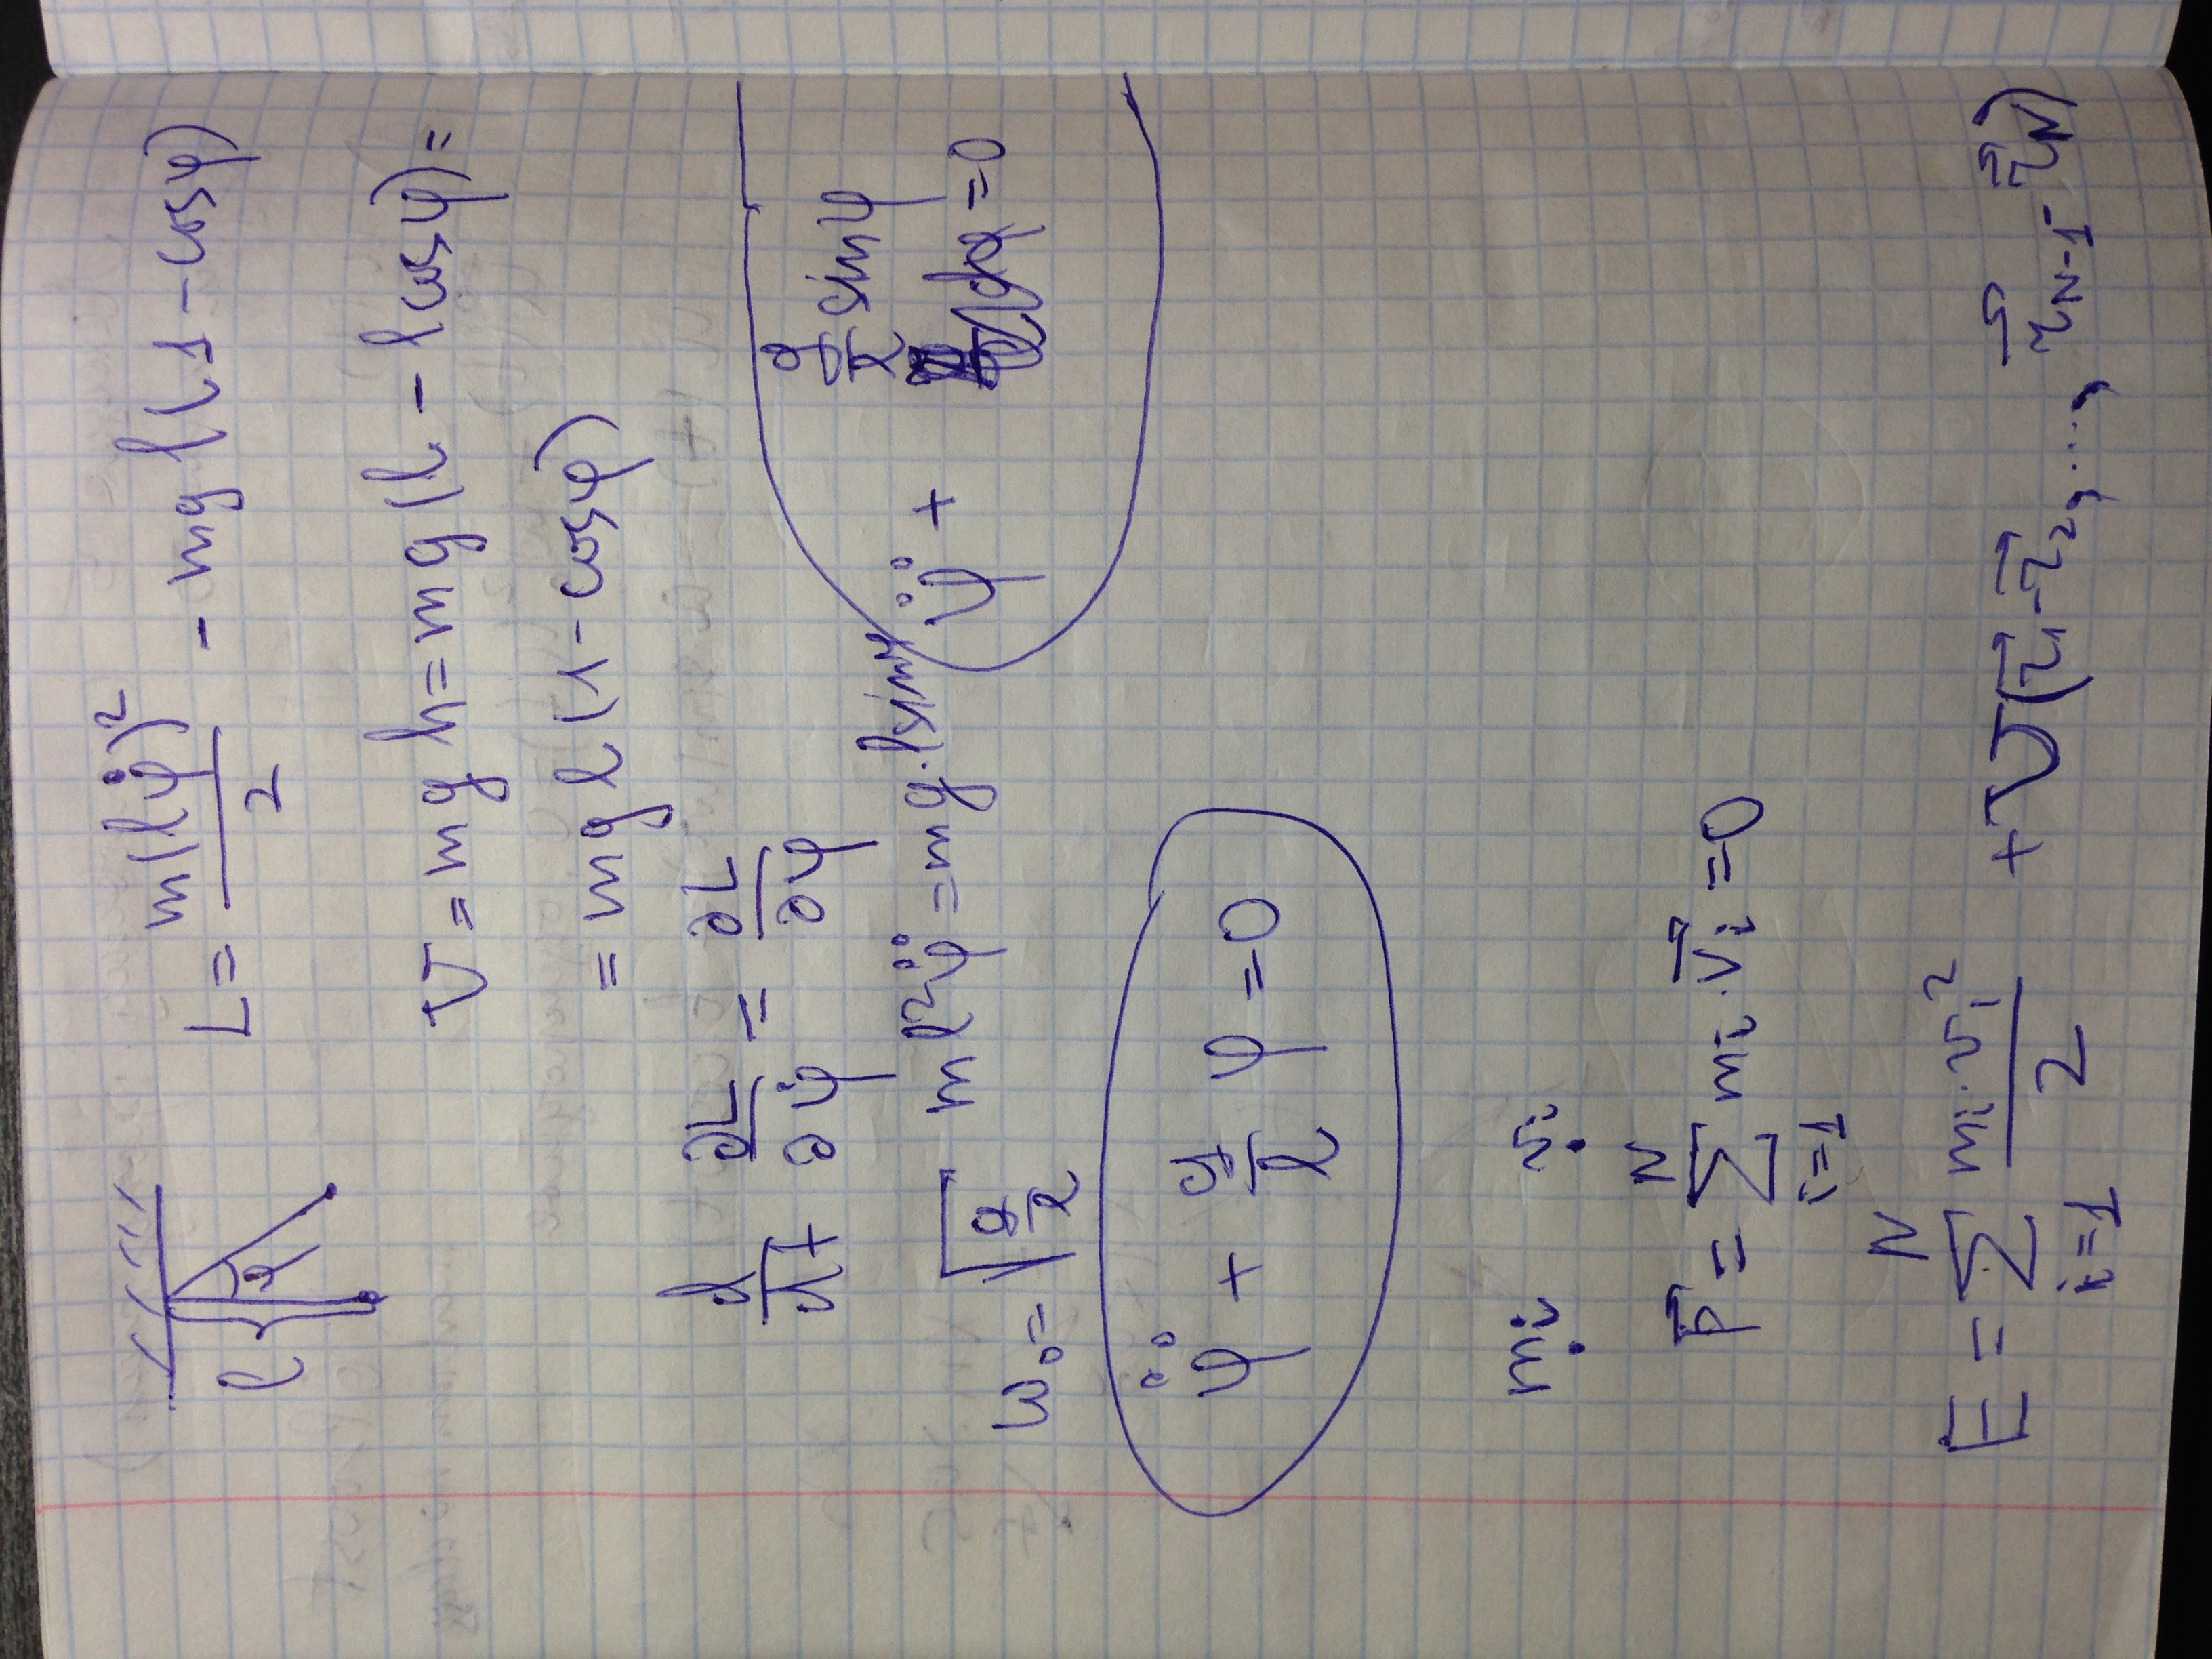 L = m(lφ̇)²/2 - mgl(1 - cosφ)
l φ
U = mgh = mg(l - lcosφ) =
= mgl(1 - cosφ)
d/dt ∂L/∂φ̇ = ∂L/∂φ
ml²φ̈ = mg·lsinφ
φ̈ + g/l sinφ = 0
ω₀ = √(g/l)
φ̈ + g/l φ = 0
mᵢ vᵢ
P⃗ = ∑ᵢ₌₁ᴺ mᵢ·v⃗ᵢ = 0
E = ∑ᵢ₌₁ᴺ mᵢ·vᵢ²/2 + U(r⃗₁ - r⃗₂, ..., r⃗_N-1 - r⃗_N)